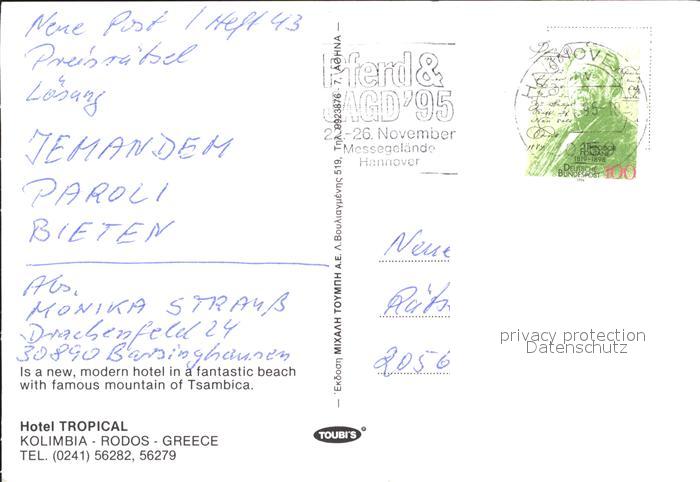 Neue Post / Heft 43
Preisrätsel
Lösung
JEMANDEM
PAROLI
BIETEN
Abs.
MONIKA STRAUß
Drachenfeld 24
30890 Barsinghausen
Is a new, modern hotel in a fantastic beach
with famous mountain of Tsambica.
Hotel TROPICAL
KOLIMBIA - RODOS - GREECE
TEL. (0241) 56282, 56279
Έκδοση ΜΙΧΑΛΗ ΤΟΥΜΠΗ Α.Ε. Λ.Βουλιαγμένης 519, Τηλ. 9923876 - 7, ΑΘΗΝΑ
TOUBI'S
Pferd &
JAGD '95
-26. November
Messegelände
Hannover
HANNOVER
1819-1898
DEUTSCHE
BUNDESPOST
100
Neue
Räts
2056
privacy protection
Datenschutz